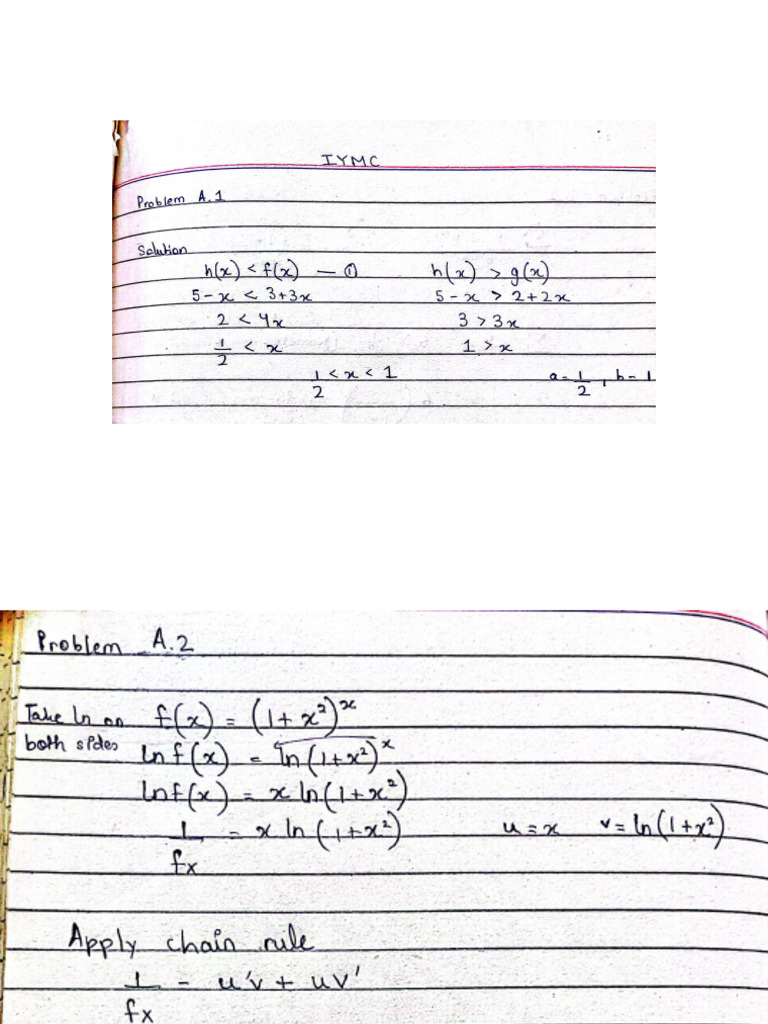 IYMC
Problem A.1
Solution
h(x) < f(x) — ① h(x) > g(x)
5-x < 3+3x 5-x > 2+2x
2 < 4x 3 > 3x
1/2 < x 1 > x
1/2 < x < 1 a = 1/2 , b = 1
Problem A.2
Take ln on both sides
f(x) = (1+x²)ˣ
ln f(x) = ln(1+x²)ˣ
ln f(x) = x ln(1+x²)
1/fx = x ln(1+x²) u=x v=ln(1+x²)
Apply chain rule
1/fx = u'v + uv'